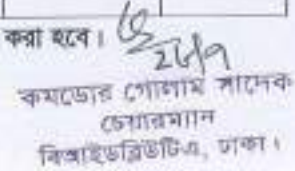 করা হবে।
২৮/৭
কমডোর গোলাম সাদেক
চেয়ারম্যান
বিআইডব্লিউটিএ, ঢাকা।